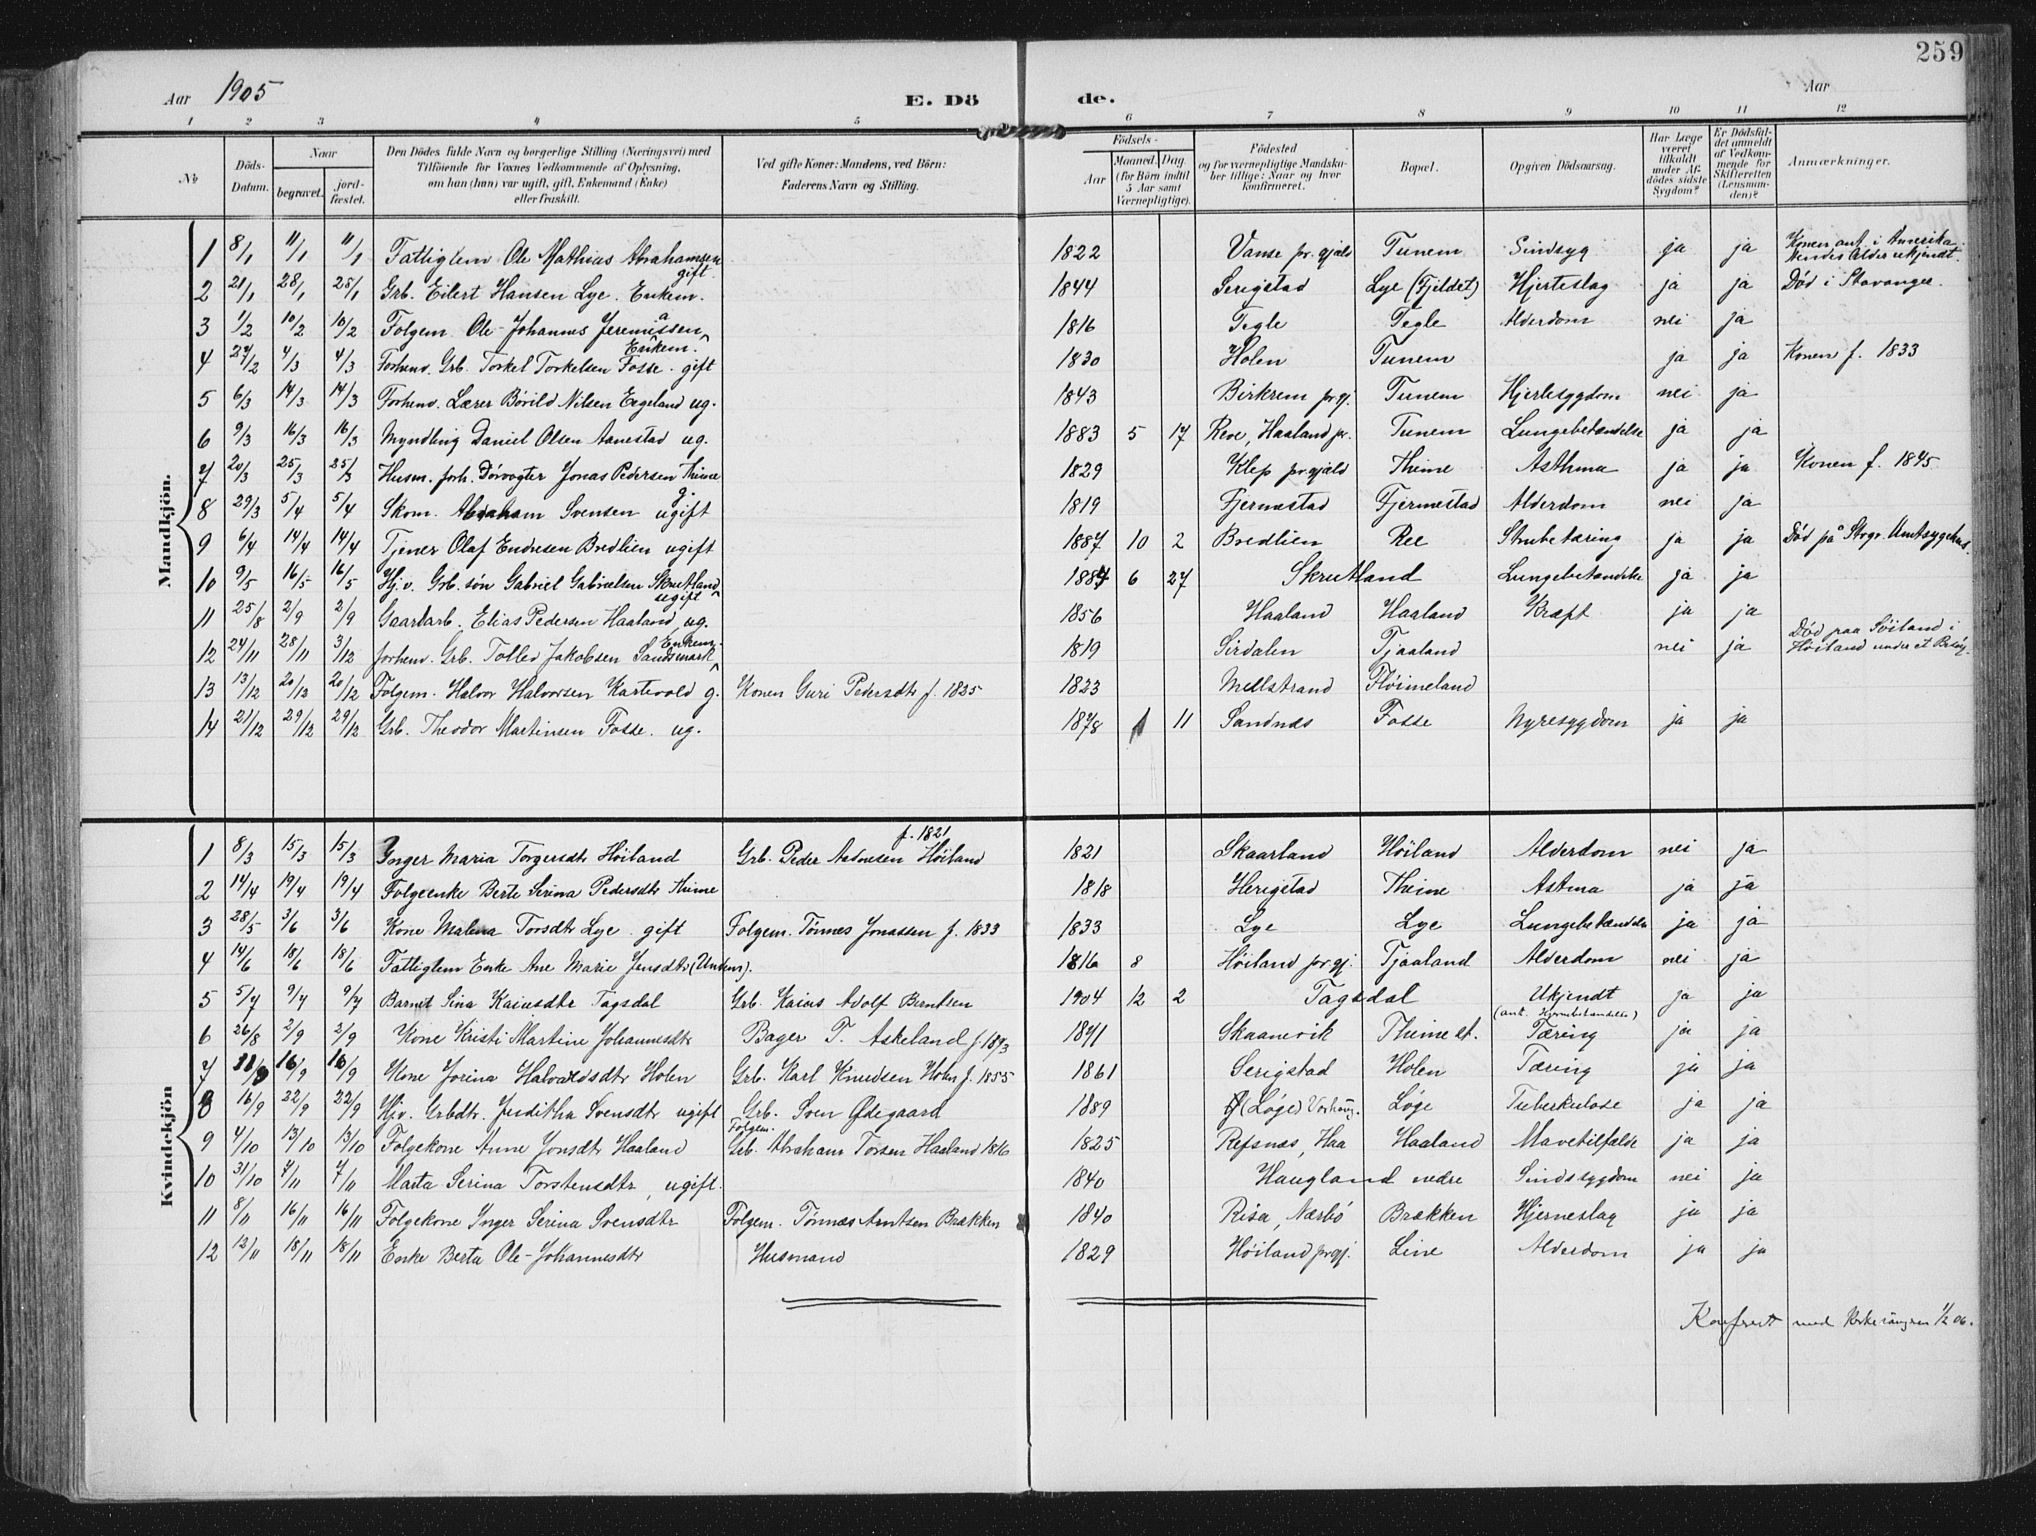 259
Aar 1905 E. Dö de. Aar
1 2 3 4 5 6 7 8 9 10 11 12
No
Döds-Datum.
Naar
begravet.
jord-fæstet.
Den Dödes fulde Navn og borgerlige Stilling (Næringsvei) med
Tilföiende for Voxnes Vedkommende af Oplysning,
om han (hun) var ugift, gift, Enkemand (Enke)
eller fraskilt.
Ved gifte Koner: Mandens, ved Börn:
Faderens Navn og Stilling.
Födsels-
Aar
Maaned. Dag.
(for Börn indtil
5 Aar samt
Værnepligtige).
Födested
og for værnepligtige Mandska-
ber tillige: Naar og hvor
konfirmeret.
Bopæl.
Opgiven Dödsaarsag.
Har Læge
været
tilkaldt
under Af-
dödes sidste
Sygdom?
Er Dödsfal-
det anmeldt
af Vedkom-
mende for
Skifteretten
(Lensman-
den)?
Anmærkninger.
Mandkjön.
1 8/1 11/1 11/1 Fattiglem Ole Mathias Abrahamsen gift 1822 Vanse pr.gjæld Tunem Sindsyg ja ja Konen ant. i Amerika. Hendes Alder ukjendt.
2 21/1 28/1 28/1 Grb. Eilert Hansen Lye. Enkem. 1844 Serigstad Lye (Fjeldet) Hjerteslag ja ja Död i Stavanger.
3 1/2 10/2 10/2 Folgem. Ole-Johannes Jeremiassen Enkem. 1816 Tegle Tegle Alderdom nei ja
4 27/2 4/3 4/3 Forhenv. Grb. Torkel Torkelsen Fosse. gift 1830 Holen Tunem ja ja Konen f. 1833
5 6/3 14/3 14/3 Forhenv. Lærer Börild Nilsen Eegeland ug. 1843 Birkrem prgj. Tunem Hjertesygdom nei ja
6 9/3 16/3 16/3 Myndling Daniel Olsen Aanestad ug. 1883 5 17 Reve, Haaland pr. Tunem Lungebetændelse ja ja
7 20/3 25/3 25/3 Husm. forh. Dörvogter Jonas Pedersen Thime g. 1829 Klep pr.gjæld Thime Asthma ja ja Konen f. 1845
8 29/3 5/4 5/4 Skom. Abraham Svensen ugift 1819 Fjermestad Fjermestad Alderdom nei ja
9 6/4 14/4 14/4 Tjener Olaf Endresen Bredlien ugift 1887 10 2 Bredlien Ree Strubetæring ja ja Död på Stvgr. Amtsygehus.
10 9/5 16/5 16/5 Hj.v. Grb. sön Gabriel Gabrielsen Skrutland ugift 1884 6 27 Skrutland Lungebetændelse ja ja
11 25/8 2/9 2/9 Gaardarb. Elias Pedersen Haaland, ug. 1856 Haaland Haaland Kræft ja ja
12 24/11 28/11 3/12 forhenv. Grb. Tollev Jakobsen Sandsmark Enkem. 1819 Sirdalen Tjaaland nei ja Död paa Söiland i Höiland under et Besög.
13 13/12 20/12 20/12 Folgem. Halvor Halvorsen Kartevold g. Konen Guri Pedersdtr f. 1825 1823 Mellstrand Flöimeland
14 21/12 29/12 29/12 Grb. Theodor Martinsen Fosse. ug. 1878 1 11 Sandnæs Fosse Nyresygdom ja ja
Kvindekjön
1 8/3 15/3 15/3 Inger Maria Torgersdtr Höiland Grb. Peder Aadnesen Höiland f. 1821 1821 Skaarland Höiland Alderdom nei ja
2 14/4 19/4 19/4 Folgeenke Berte Serina Pedersdtr Thime 1818 Herigstad Thime Astma ja ja
3 28/5 3/6 3/6 Kone Malena Torsdtr Lye. gift Folgem. Tönnes Jonassen f. 1833 1833 Lye Lye Lungebetændelse ja ja
4 14/6 18/6 18/6 Fattiglem Enke Ane Marie Jensdtr 1816 8 Höiland prgj. Tjaaland Alderdom nei ja
5 5/7 9/7 9/7 Barnet Sina Kaiusdtr Tagsdal Grb. Kaius Adolf Berntsen 1904 12 2 Tagsdal Ukjendt (ant. Hjernebetændelse) ja ja
6 26/8 2/9 2/9 Kone Kristi Martine Johannesdtr Bager T. Askeland f. 1873 1871 Skaanevik Thime st. Tæring ja ja
7 11/9 16/9 16/9 Kone Jorina Halvardsdtr Holen Grb. Karl Knudsen Holen f. 1855 1861 Serigstad Holen Tæring ja ja
8 16/9 22/9 22/9 Hjv. Grbdtr. Juditha Svensdtr ugift Grb. Sven Ødegaard 1889 (Löge) Varhaug. Löge Tuberkulose ja ja
9 4/10 13/10 13/10 Folgekone Anne Jonsdtr Haaland Folgem. Grb. Abraham Torsen Haaland 1816 1825 Refsnæs, Haa Haaland Mavetilfælde ja ja
10 31/10 7/11 7/11 Marta Serina Torstensdtr, ugift. 1840 Haugland nedre Sindssygdom nei ja
11 8/11 16/11 16/11 Folgekone Inger Serina Svensdtr Folgem. Tönnes Arntsen Brækken 1840 Risa, Nærbö Brækken Hjerneslag ja ja
12 12/11 18/11 18/11 Enke Berta Ole-Johannesdtr Husmand 1829 Höiland prgj. Line Alderdom ja ja
Konfereret med 1/2 06.